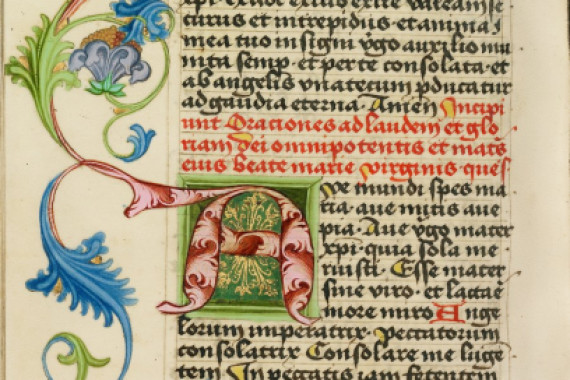 xpi · exaudi
curus et intrepidus et anima
mea tuo insigni vgo auxilio mu
nita semp · et per te consolata · et
ab angelis vnaterum pducatur
ad gaudia eterna · Amen Incipi
unt Oraciones ad laudem et glo
riam dei omnipotentis et mats
eius beate marie virginis ques
Ave mundi spes ma
ria · aue mitis aue
pia · Aue vgo mater
xpi · quia sola me
ruisti · Esse mater
sine viro · et lactae
more miro Ange
lorum imperatrix · peccatorum
consolatrix Consolare me luge
tem In peccatis iam fetentem